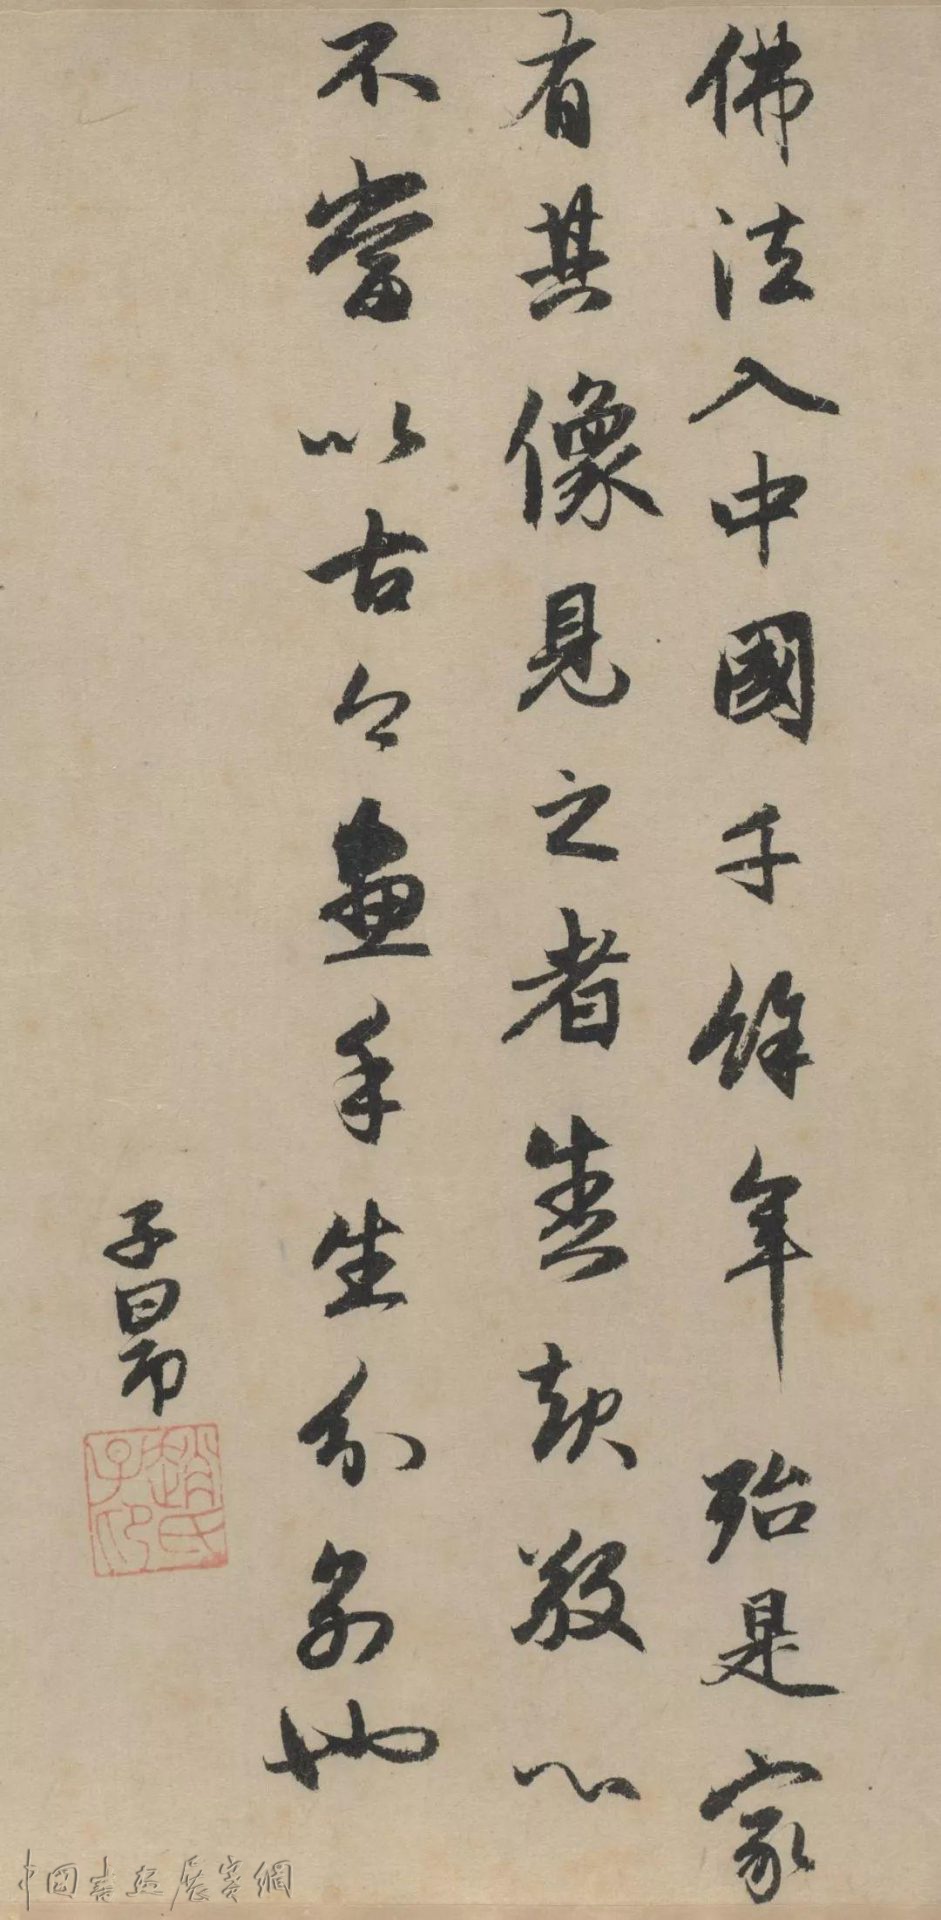 佛法入中國千餘年殆是家
有其像見之者敬心
不當以古今畫手生分別也
子昂
趙氏子昂
中國書法展賽網